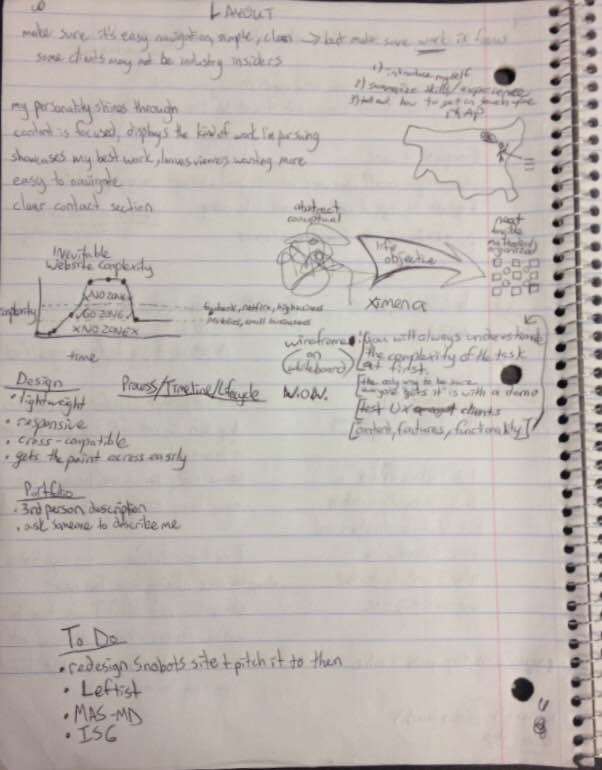 LAYOUT
make sure it's easy navigation, simple, clean → but make sure work is focus
some clients may not be industry insiders
1) introduce myself
2) summarize skills/experience
3) how to get in touch
MAP
my personality shines through
content is focused, displays the kind of work I'm pursuing
showcases my best work, leaves viewers wanting more
easy to navigate
clear contact section
abstract
conceptual
life
objective
neat
tangible
organized
XIMENA
Inevitable
Website Complexity
NO ZONE
GO ZONE
X NO ZONE X
complexity
time
facebook, netflix, high
small businesses
wireframe
(on
whiteboard)
"you will always underestimate
the complexity of the task
at first.
W.O.W.
[the only way to be sure
everyone "gets it" is with a demo
[test UX against clients
[content, features, functionality]
Design
• lightweight
• responsive
• cross-compatible
• gets the point across easily
Process/Timeline/Lifecycle
Portfolio
• 3rd person description
• ask someone to describe me
To Do
• redesign Snobots site + pitch it to them
• Leftist
• MAS-MD
• ISG